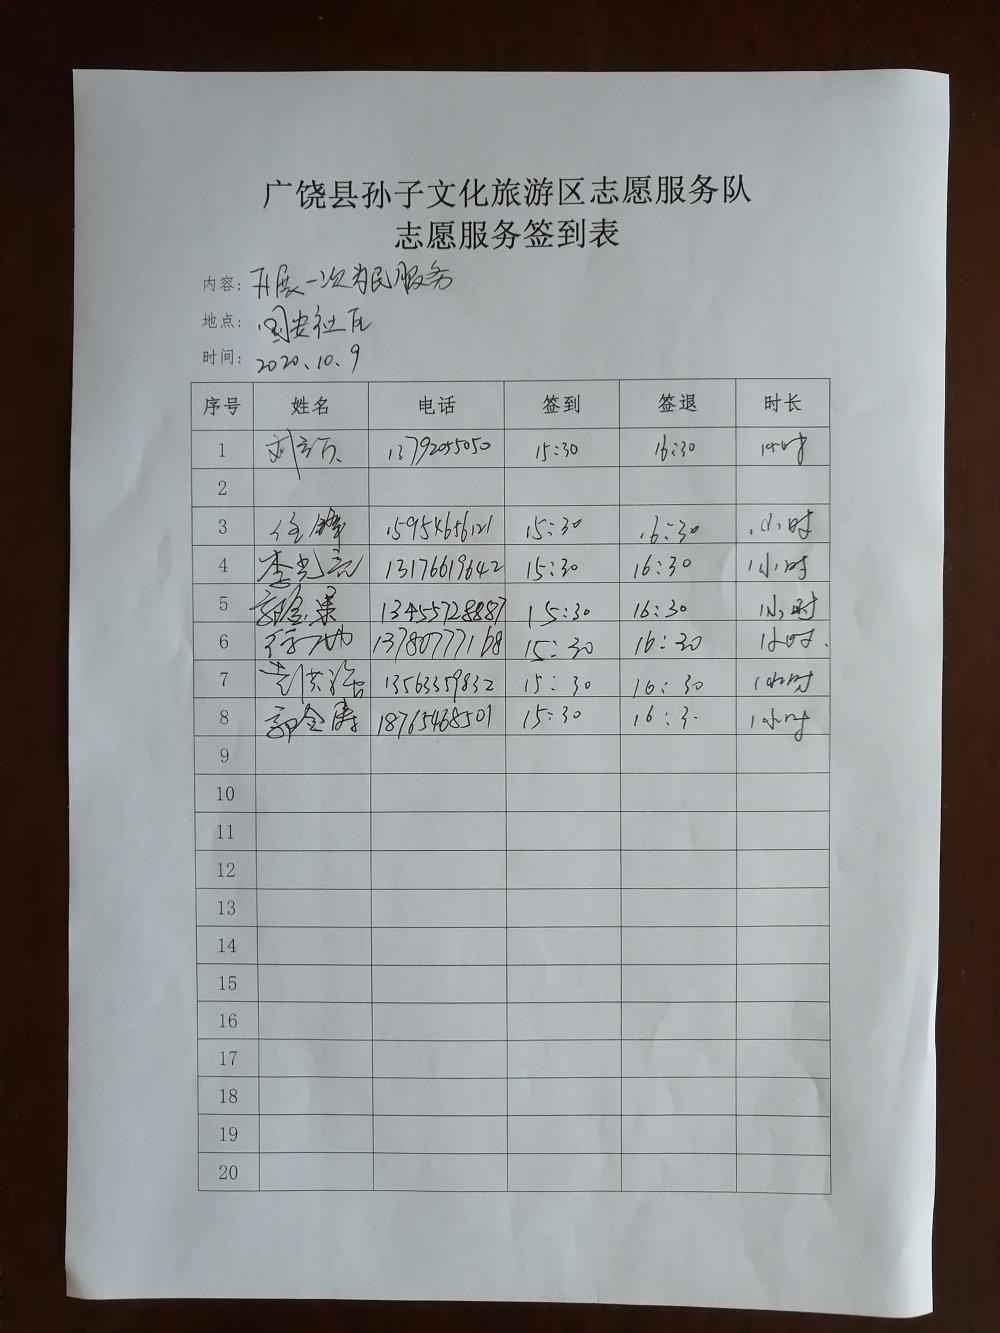 广饶县孙子文化旅游区志愿服务队
志愿服务签到表
内容：开展一次为民服务
地点：国安社区
时间：2020.10.9
序号 姓名 电话 签到 签退 时长
1 刘 13792055050 15:30 16:30 1小时
2
3 任锋 15954656121 15:30 16:30 1小时
4 李光亮 13176619642 15:30 16:30 1小时
5 郭金果 13455728887 15:30 16:30 1小时
6 13780777168 15:30 16:30 1小时.
7 13563359832 15:30 16:30 1小时
8 郭金涛 18765468501 15:30 16:3. 1小时
9
10
11
12
13
14
15
16
17
18
19
20